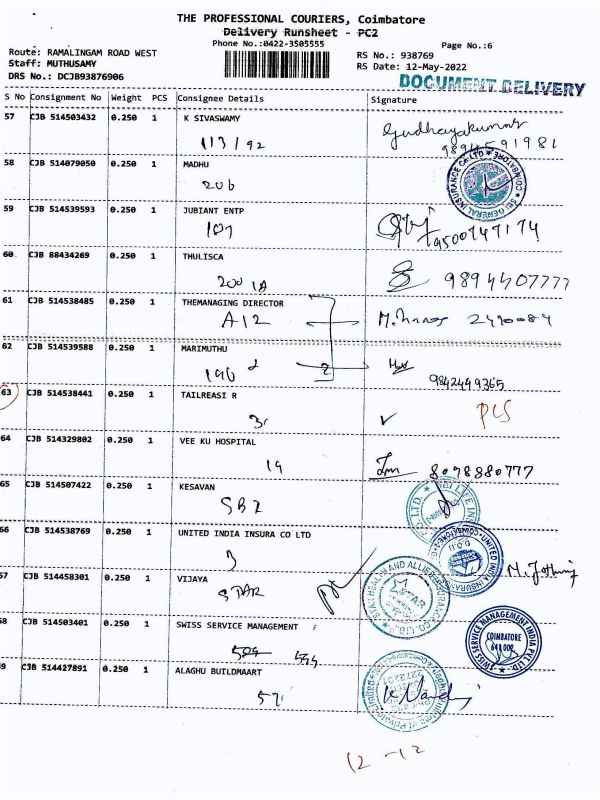 THE PROFESSIONAL COURIERS, Coimbatore
Delivery Runsheet - PC2
Phone No.:0422-3505555
Page No.:6
Route: RAMALINGAM ROAD WEST
Staff: MUTHUSAMY
DRS No.: DCJB93876906
RS No.: 938769
RS Date: 12-May-2022
DOCUMENT DELIVERY
S No Consignment No Weight PCS Consignee Details Signature
57 CJB 514503432 0.250 1 K SIVASWAMY
113/92
58 CJB 514079050 0.250 1 MADHU
206
SBI GENERAL INSURANCE CO LTD
59 CJB 514539593 0.250 1 JUBIANT ENTP
107
9500747174
60 CJB 88434269 0.250 1 THULISCA
200 1A
9894407777
61 CJB 514538485 0.250 1 THEMANAGING DIRECTOR
A12
62 CJB 514539588 0.250 1 MARIMUTHU
196
9842449365
63 CJB 514538441 0.250 1 TAILREASI R
PCS
64 CJB 514329802 0.250 1 VEE KU HOSPITAL
19 8078880777
65 CJB 514507422 0.250 1 KESAVAN
66 CJB 514538769 0.250 1 UNITED INDIA INSURA CO LTD
3
67 CJB 514458301 0.250 1 VIJAYA
STAR
STAR
68 CJB 514503401 0.250 1 SWISS SERVICE MANAGEMENT
SWISS SERVICE MANAGEMENT INDIA PVT. LTD.
COIMBATORE
69 CJB 514427891 0.250 1 ALAGHU BUILDMAART
57
12-12